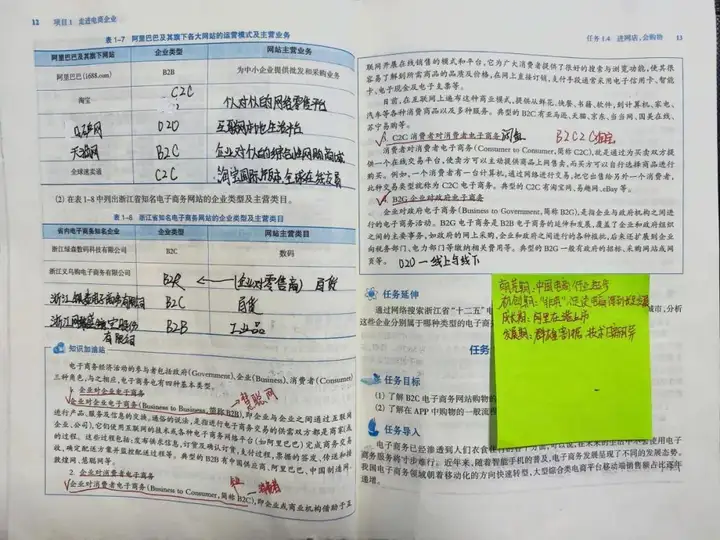 12 项目1 走进电商企业
表 1-7 阿里巴巴及其旗下各大网站的运营模式及主营业务
阿里巴巴及其旗下网站 企业类型 网站主营业务
阿里巴巴(1688.com) B2B 为中小企业提供批发和采购业务
淘宝 C2C 个人对个人的网络零售平台
口碑网 O2O 互联网本地生活平台
天猫网 B2C 企业对个人的综合性网购商城
全球速卖通 C2C 淘宝国际版本 全球在线交易
(2) 在表 1-8 中列出浙江省知名电子商务网站的企业类型及主营类目。
表 1-8 浙江省知名电子商务网站的企业类型及主营类目
省内电子商务知名企业 企业类型 网站主营类目
浙江绿森数码科技有限公司 B2C 数码
浙江义乌购电子商务有限公司 B2R ← (企业对零售商) 百货
浙江 电子商务有限公司 B2C 百货
浙江网盛 股份有限公司 B2B 工业品
知识加油站
电子商务经济活动的参与者包括政府(Government)、企业(Business)、消费者(Consumer)
三种角色,与之相应,电子商务有四种基本类型。
1. 企业对企业电子商务 慧聪网
企业对企业电子商务(Business to Business,简称B2B),即企业与企业之间通过互联网
进行产品、服务及信息的交换。通俗的说法,是指进行电子商务交易的供需双方都是商家(或
企业、公司),它们使用互联网的技术或各种电子商务网络平台(如阿里巴巴)完成商务交易
的过程。这些过程包括:发布供求信息,订货及确认订货,支付过程,票据的签发、传送和接
收,确定配送方案并监控配送过程等。典型的 B2B 有中国供应商、阿里巴巴、中国制造网、
敦煌网、慧聪网等。
2. 企业对消费者电子商务
企业对消费者电子商务(Business to Consumer,简称 B2C),即企业或商业机构借助于互
任务 1.4 进网店,会购物 13
联网开展在线销售的模式和平台,它为广大消费者提供了很好的搜索与浏览功能,使其很
容易了解到所需商品的品质及价格,在网上直接订销,支付手段通常采用电子信用卡、智能
卡、电子现金及电子支票等。
目前,在互联网上遍布这种商业模式,提供从鲜花、快餐、书籍、软件,到计算机、家电、
汽车等各种消费商品以及多种服务。典型的 B2C 有亚马逊、天猫、京东、当当网、国美在线、
苏宁易购等。
3. C2C 消费者对消费者电子商务 闲鱼 B2C2C 淘宝
消费者对消费者电子商务(Consumer to Consumer,简称 C2C),就是通过为买卖双方提
供一个在线交易平台,使卖方可以主动提供商品上网售卖,而买方可以自行选择商品进行
购买。例如,一个消费者有一台计算机,通过网络进行交易,把它出售给另外一个消费者,
此种交易类型就称为 C2C 电子商务。典型的 C2C 有淘宝网、易趣网、eBay 等。
4. B2G 企业对政府电子商务
企业对政府电子商务(Business to Government,简称 B2G),是指企业与政府机构之间进
行的电子商务活动。B2G 电子商务是 B2B 电子商务的延伸和发展,覆盖了企业和政府组织
之间的主要事务。如政府的网上采购,企业和政府之间进行的各种报批,后来还扩展到企业
向税务部门、电力部门等缴纳相关费用等。典型的 B2G 一般有政府的招标、采购网站或网
页等。 O2O — 线上与线下
萌芽期:中国电商行业起步
初创期:"非典"促使电商得到快速发展
成长期:阿里在港上市
发展期:群雄割据 技术日新月异
任务延伸
通过网络搜索浙江省"十二五"电 城市,分析
这些企业分别属于哪种类型的电子商
任务
任务目标
(1) 了解 B2C 电子商务网站购物的
(2) 了解在 APP 中购物的一般流程
任务导入
电子商务已经渗透到人们衣食住行的
商务服务将寸步难行。近年来,随着智能手机的普及,电子商务发展呈现了不同的发展态势。
我国电子商务领域朝着移动化的方向快速转型,大型综合类电商平台移动端销售额占比逐年
递增。